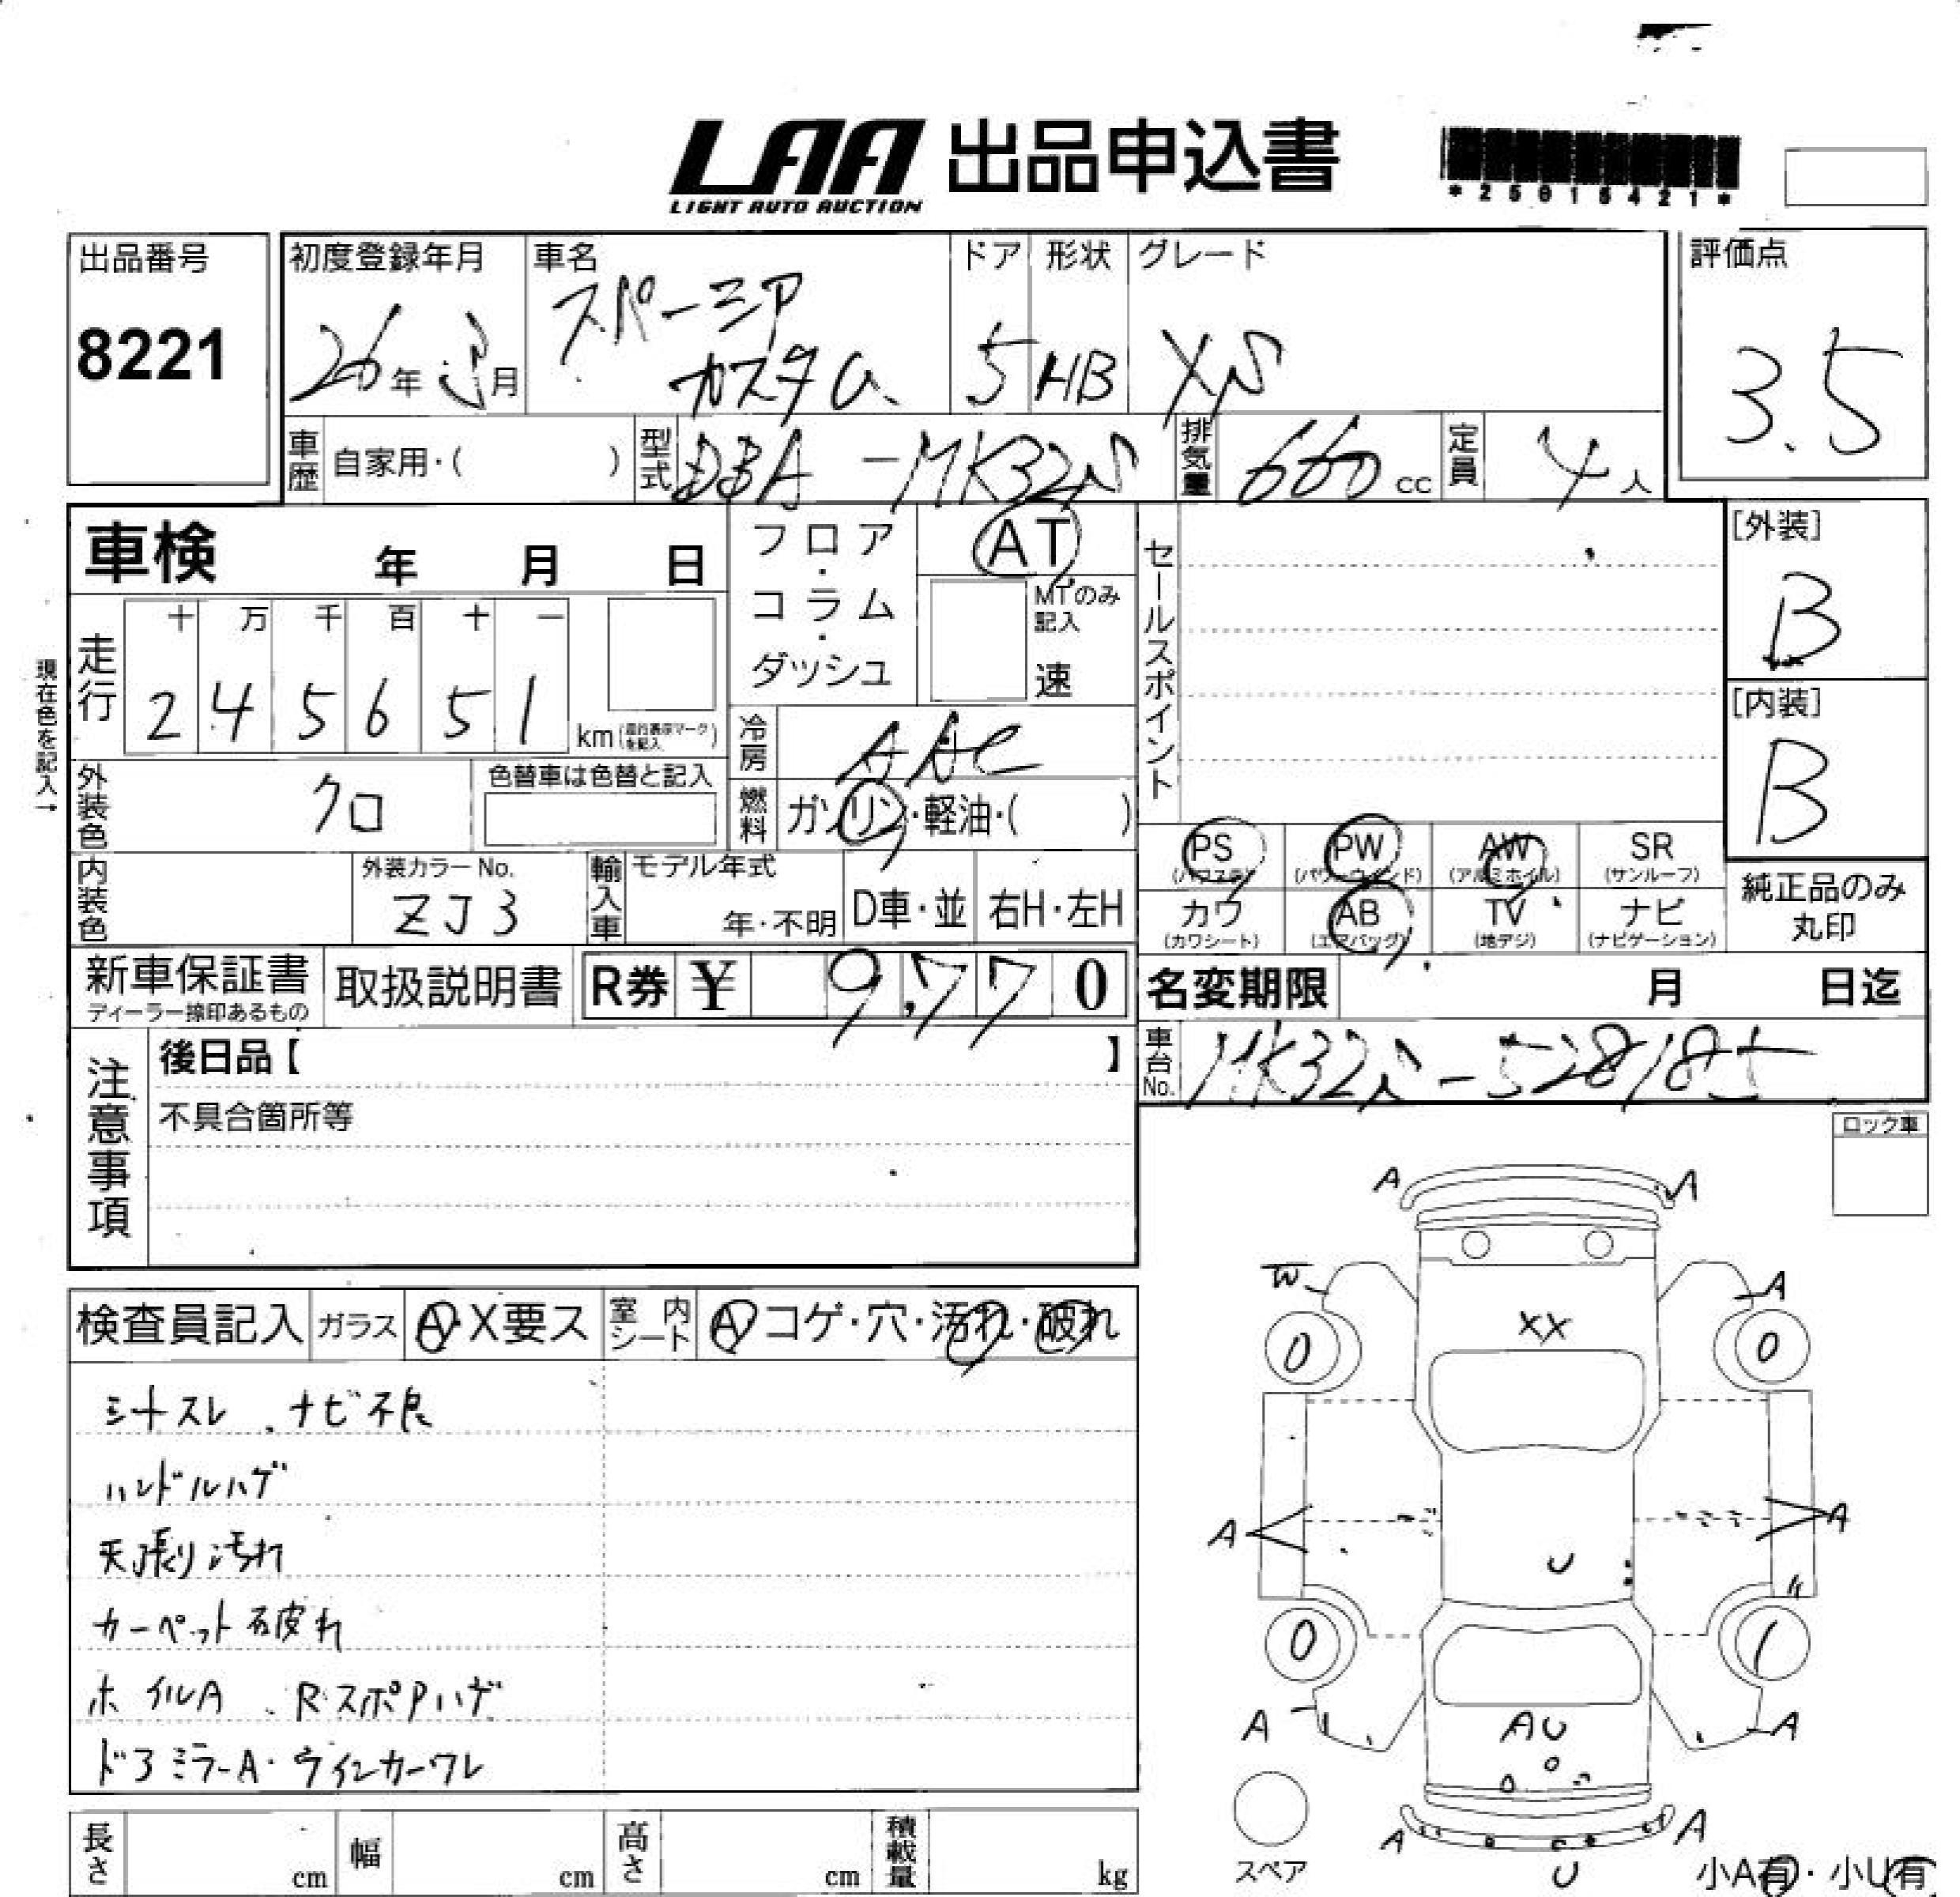 LAA 出品申込書
LIGHT AUTO AUCTION
*25015421*
出品番号
8221
初度登録年月
26年 月
車名
スペーシア
カスタム
ドア
5
形状
HB
グレード
XS
評価点
3.5
車歴 自家用・( )
型式 DBA-MK32S
排気量 660 cc
定員 4人
車検 年 月 日
フロア・コラム・ダッシュ
AT
MTのみ記入
速
セールスポイント
[外装]
B
[内装]
B
現在色を記入→
走行
十 万 千 百 十 一
2 4 5 6 5 1 km (走行表示マークを記入)
冷房 AAC
燃料 ガソリン・軽油・( )
外装色 クロ
色替車は色替と記入
内装色
外装カラーNo.
ZJ3
輸入車 モデル年式
年・不明
D車・並
右H・左H
PS (パワステ)
PW (パワーウインド)
AW (アルミホイル)
SR (サンルーフ)
カワ (カワシート)
AB (エアバッグ)
TV (地デジ)
ナビ (ナビゲーション)
純正品のみ
丸印
新車保証書
ディーラー捺印あるもの
取扱説明書
R券 ¥ 9,770
名変期限 月 日迄
車台No. MK32S-528185
注意事項
後日品【 】
不具合箇所等
ロック車
検査員記入
ガラス A・X要ス
室内シート A コゲ・穴・汚れ・破れ
シートスレ、ナビ不良
ハンドルハゲ
天張り汚れ
カーペット破れ
ホイルA、RスポPハゲ
ドアミラーA・ウインカーワレ
A A
W A
XX
0 0
A A
U
0 1
A A
AU
A A
U
スペア
小A有・小U有
長さ cm
幅 cm
高さ cm
積載量 kg